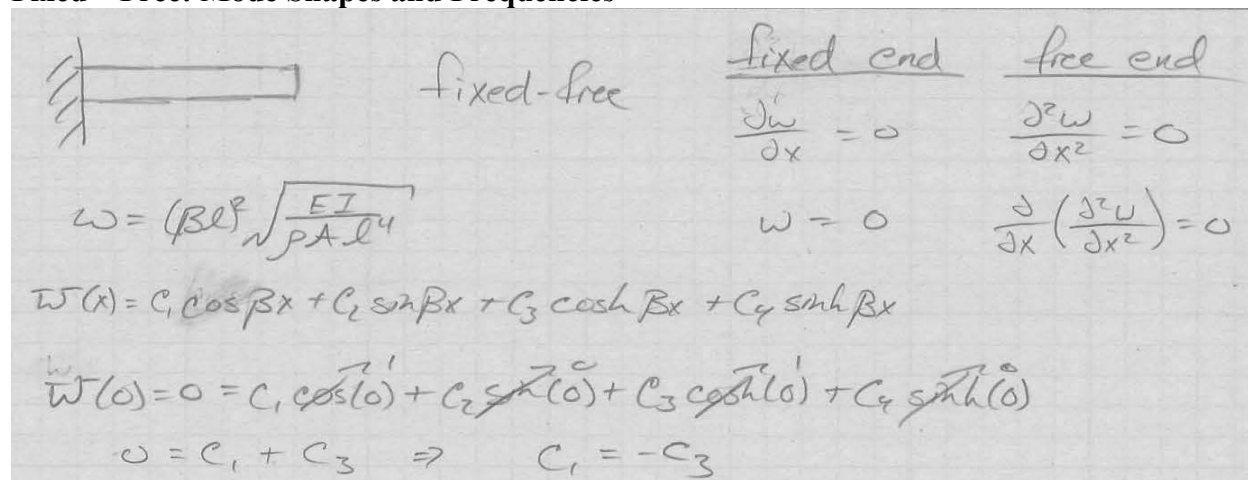 Fixed – Free: Mode Shapes and Frequencies
fixed-free
fixed end free end
∂w/∂x = 0 ∂²w/∂x² = 0
ω = (βl)² √(EI/ρAl⁴) w = 0 ∂/∂x (∂²w/∂x²) = 0
W(x) = C₁ cos βx + C₂ sin βx + C₃ cosh βx + C₄ sinh βx
W(0) = 0 = C₁ cos(0)→1 + C₂ sin(0)→0 + C₃ cosh(0)→1 + C₄ sinh(0)→0
0 = C₁ + C₃ ⇒ C₁ = -C₃